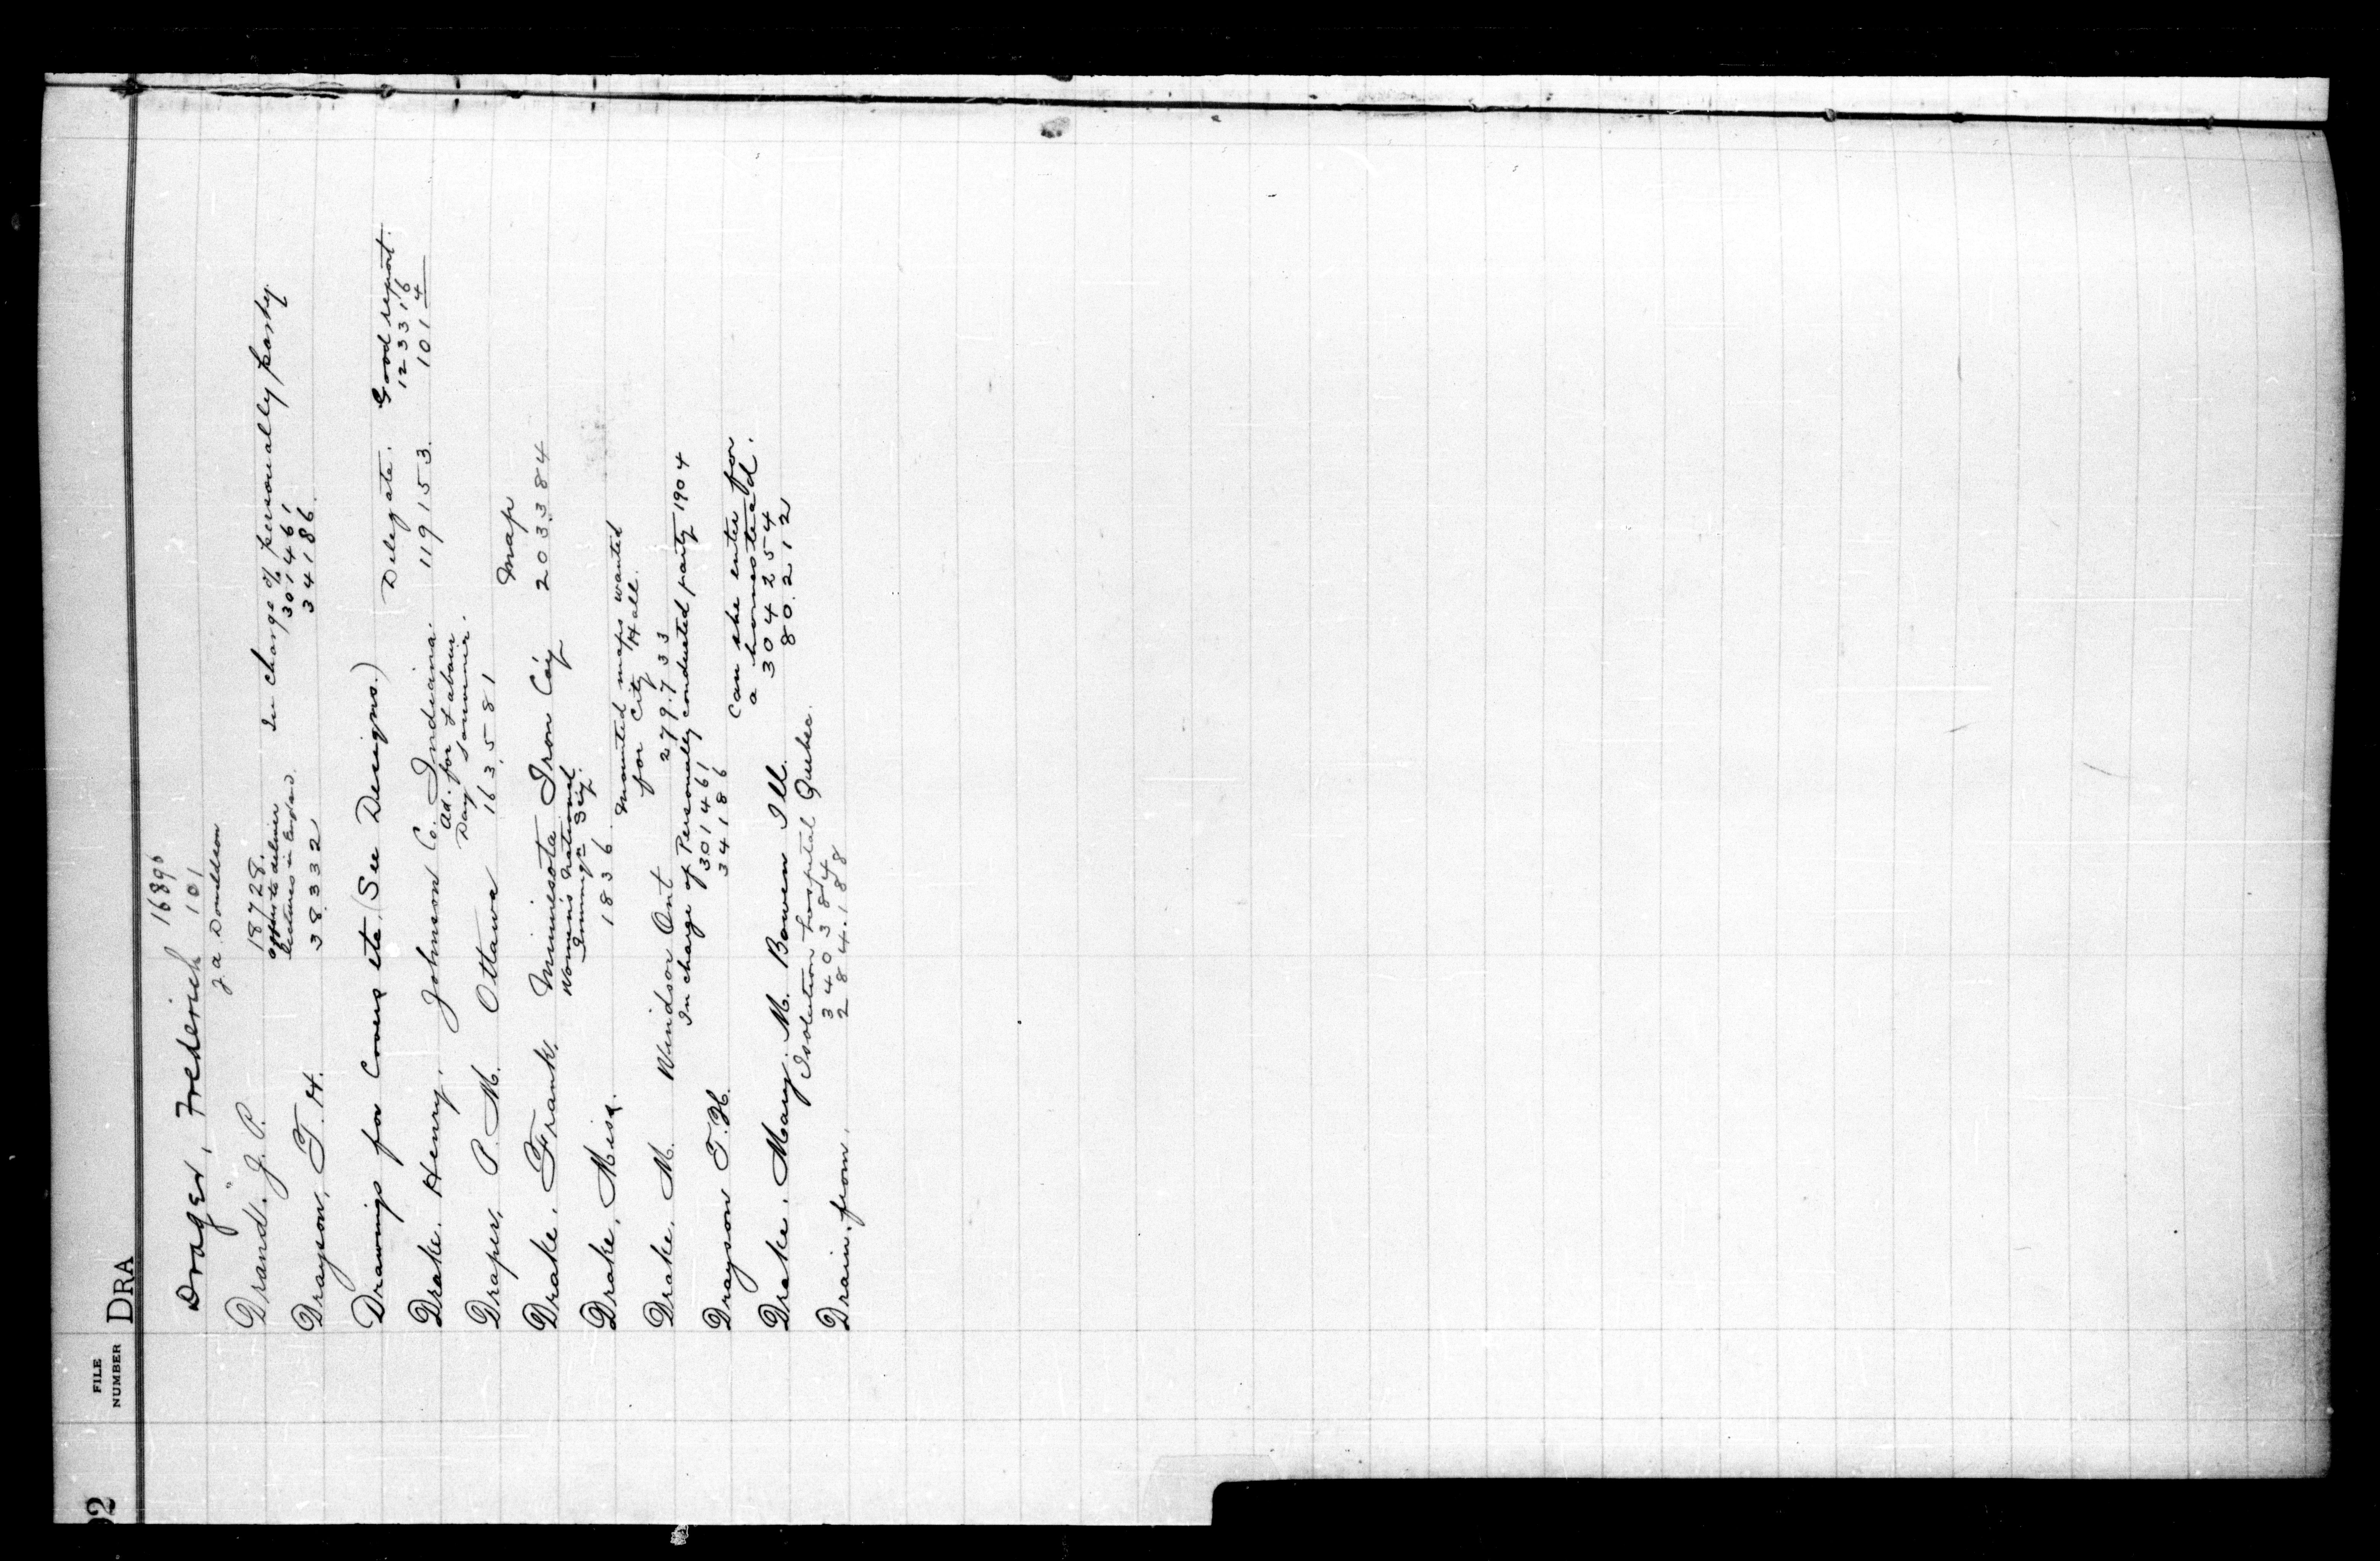 92
FILE
NUMBER
DRA
Drager, Frederich 16896
101
J. A. Donaldson
Drand. J. P. 18728.
offers to deliver
lectures in England. In charge of personally party.
Drayson, T. H. 38332 301461
34186.
Drawings for Covers etc. (See Designs.)
Delegate. Good report.
Drake. Henry, Johnson Co. Indiana. 119153. 123316
1014
Ad. for Labour
Day Souvenir.
Draper, P. M. Ottawa 163581
Map
Drake, Frank, Minnesota Iron Co'y 203384
Women's National
Immig'n Soc'y.
Drake, Miss. 1836
Mounted maps wanted
for City Hall.
Drake, M. Windsor Ont 279733
In charge of Personally conducted party 1904
Drayson T. H. 301461
34186
Can she enter for
a homestead.
Drake, Mary. M. Bowen Ill. 304254
80212
Isolation hospital Quebec.
Drain, from, 340384
284.188